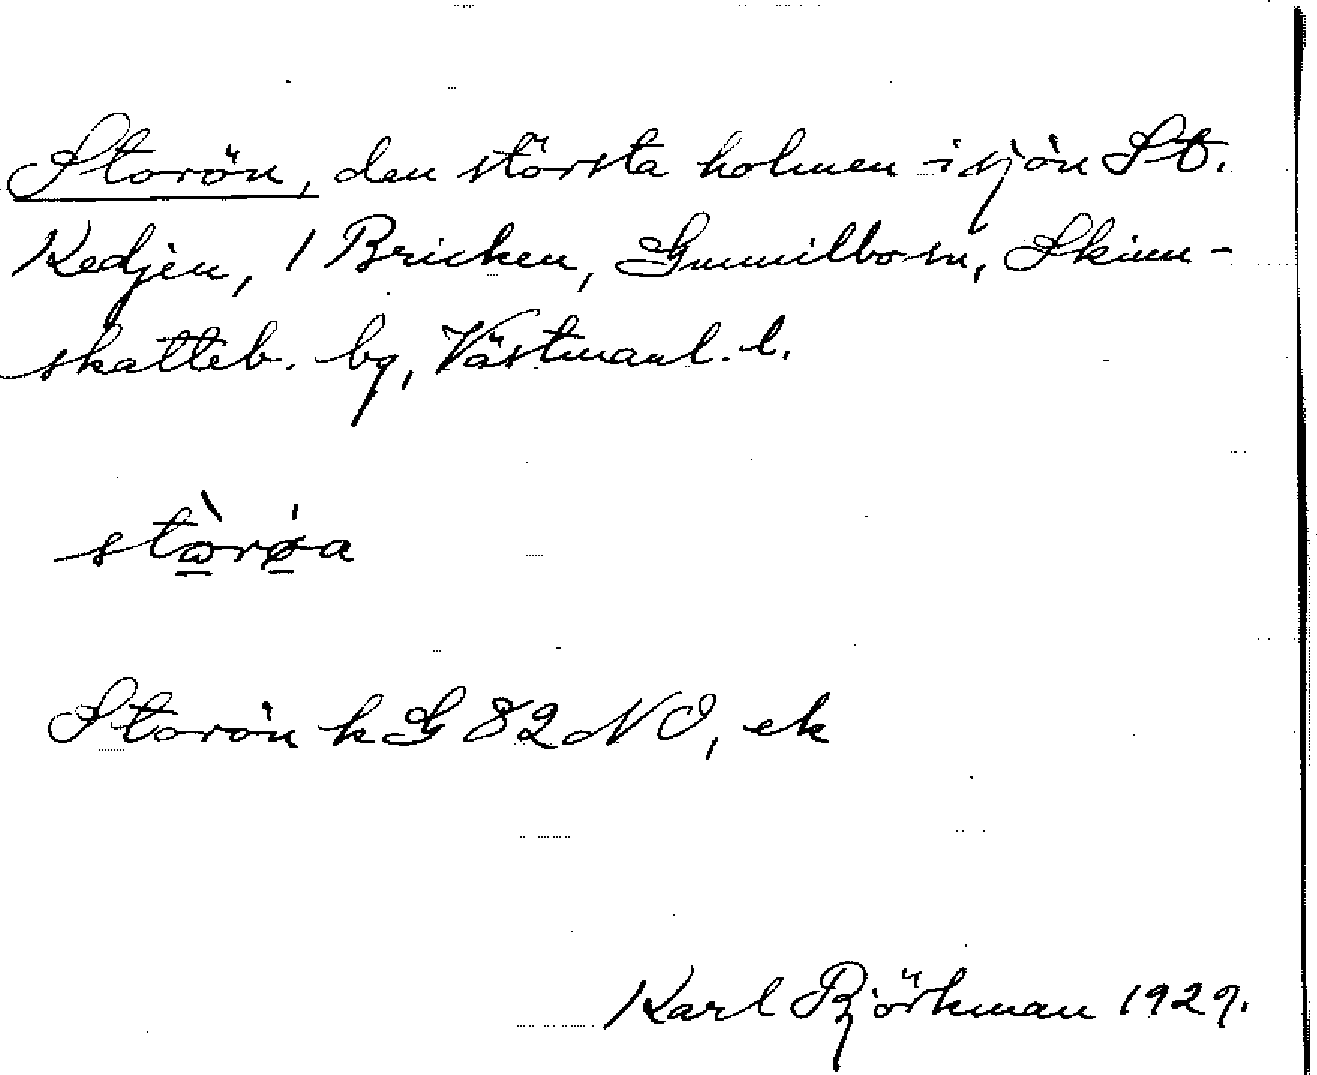 Storön, den största holmen i sjön St.
Kedjen, 1 Bricken, Gunnilbo sn, Skinn-
skatteb. hg, Västmanl. l.
stò̱rǿ̱a
Storön k G 82 NO, ek
Karl Björkman 1929.